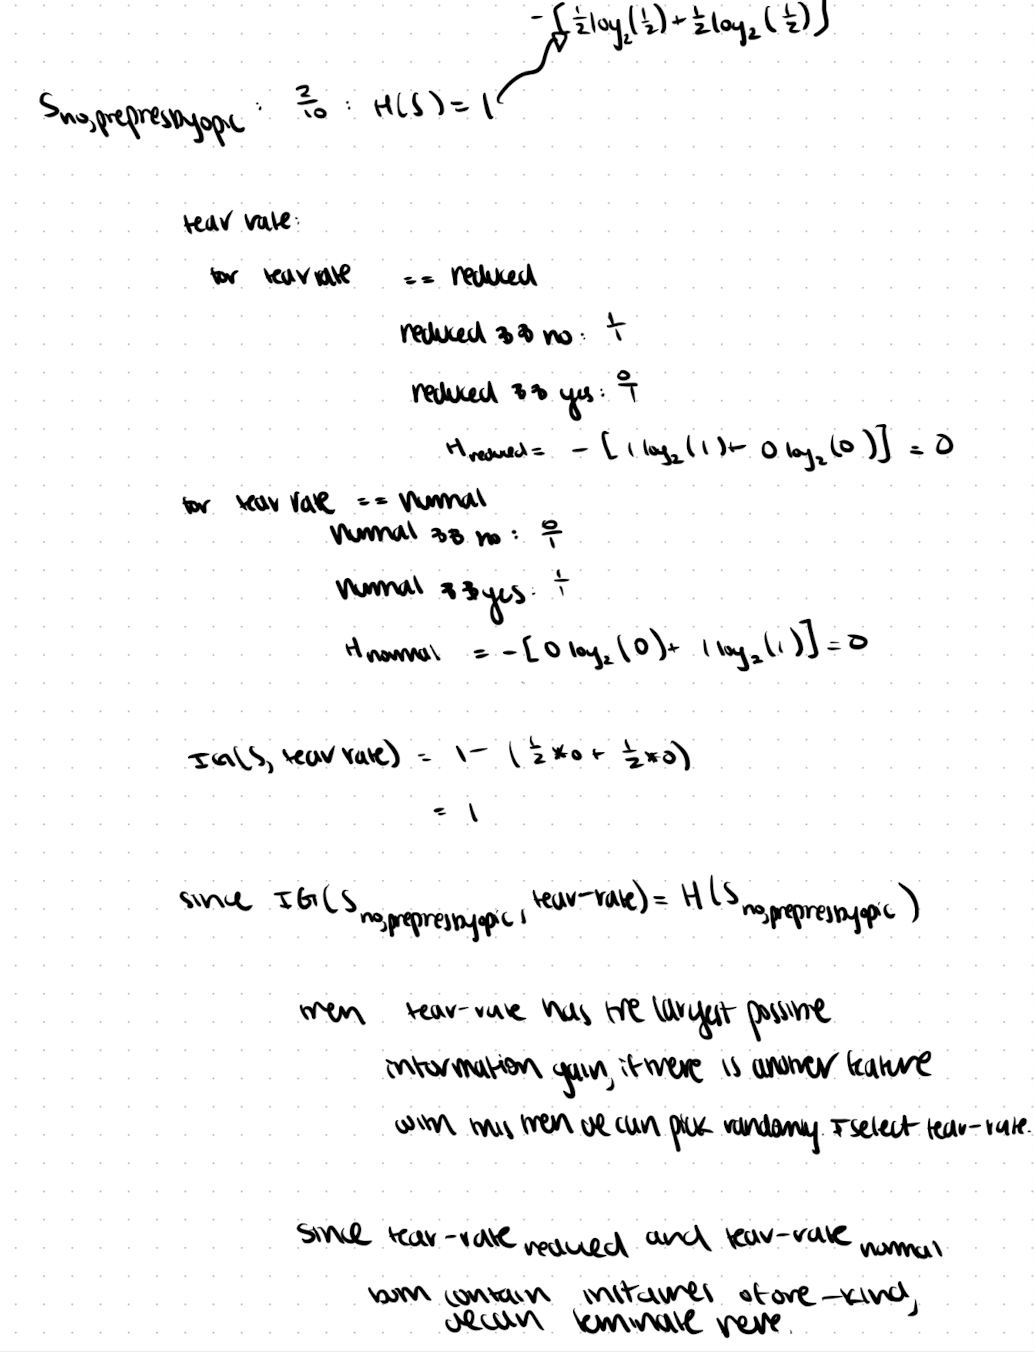 - [ 1/2 log₂(1/2) + 1/2 log₂(1/2) ]
S no,prepresbyopic : 2/10 : H(S) = 1
tear rate:
for tear rate == reduced
reduced && no : 1/1
reduced && yes : 0/1
H reduced = - [ 1 log₂(1) + 0 log₂(0) ] = 0
for tear rate == normal
normal && no : 0/1
normal && yes : 1/1
H normal = - [ 0 log₂(0) + 1 log₂(1) ] = 0
IG(S, tear rate) = 1 - ( 1/2 * 0 + 1/2 * 0 )
= 1
since IG(S no,prepresbyopic , tear-rate) = H(S no,prepresbyopic )
then tear-rate has the largest possible
information gain, if there is another feature
with this then we can pick randomly. I select tear-rate.
since tear-rate reduced and tear-rate normal
both contain instances of one-kind,
we can terminate here.